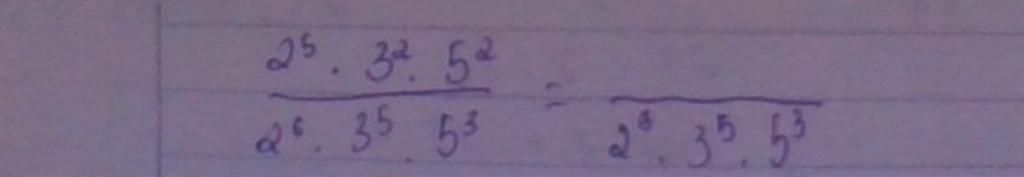 2⁵ · 3² · 5²
=
2⁶ · 3⁵ · 5³
2⁶ · 3⁵ · 5³